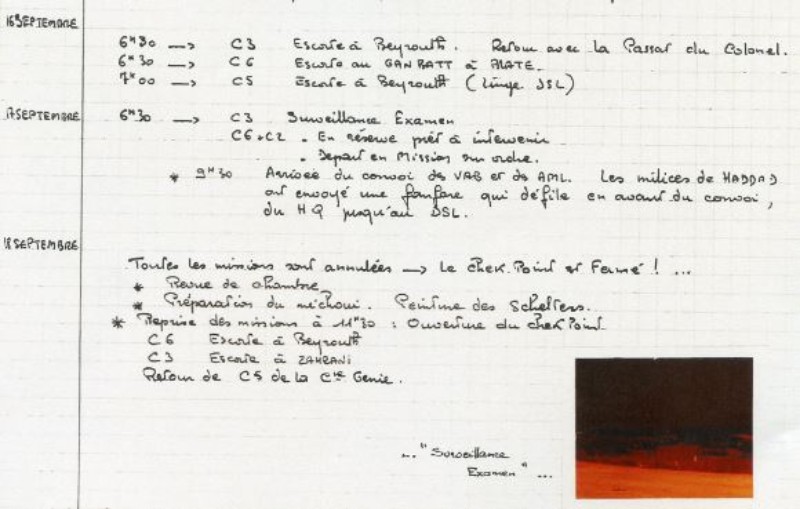 16 SEPTEMBRE
6H30 → C3 Escorte à Beyrouth. Retour avec la Passat du Colonel.
6H30 → C6 Escorte au GANBATT à
7H00 → C5 Escorte à Beyrouth (linge DSL)
17 SEPTEMBRE 6H30 → C3 Surveillance Examen
C6+C2 . En réserve prêt à intervenir
. Depart en Mission sur ordre.
* 9H30 Arrivée du convoi de VAB et de AML. Les milices de HADDAD
ont envoyé une fanfare qui défile en avant du convoi,
du HQ jusqu'au DSL.
18 SEPTEMBRE
Toutes les missions sont annulées → Le chek.Point est Fermé ! ...
* Revue de chambre
* Préparation du méchoui. Peinture des Schelters.
* Reprise des missions à 11H30 : Ouverture du chek Point
C6 Escorte à Beyrouth
C3 Escorte à ZAHRANI
Retour de C5 de la Cie Genie.
... "Surveillance
Examen" ...